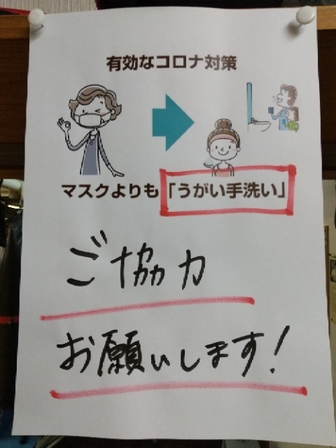 有効なコロナ対策
マスクよりも「うがい手洗い」
ご協力
お願いします!